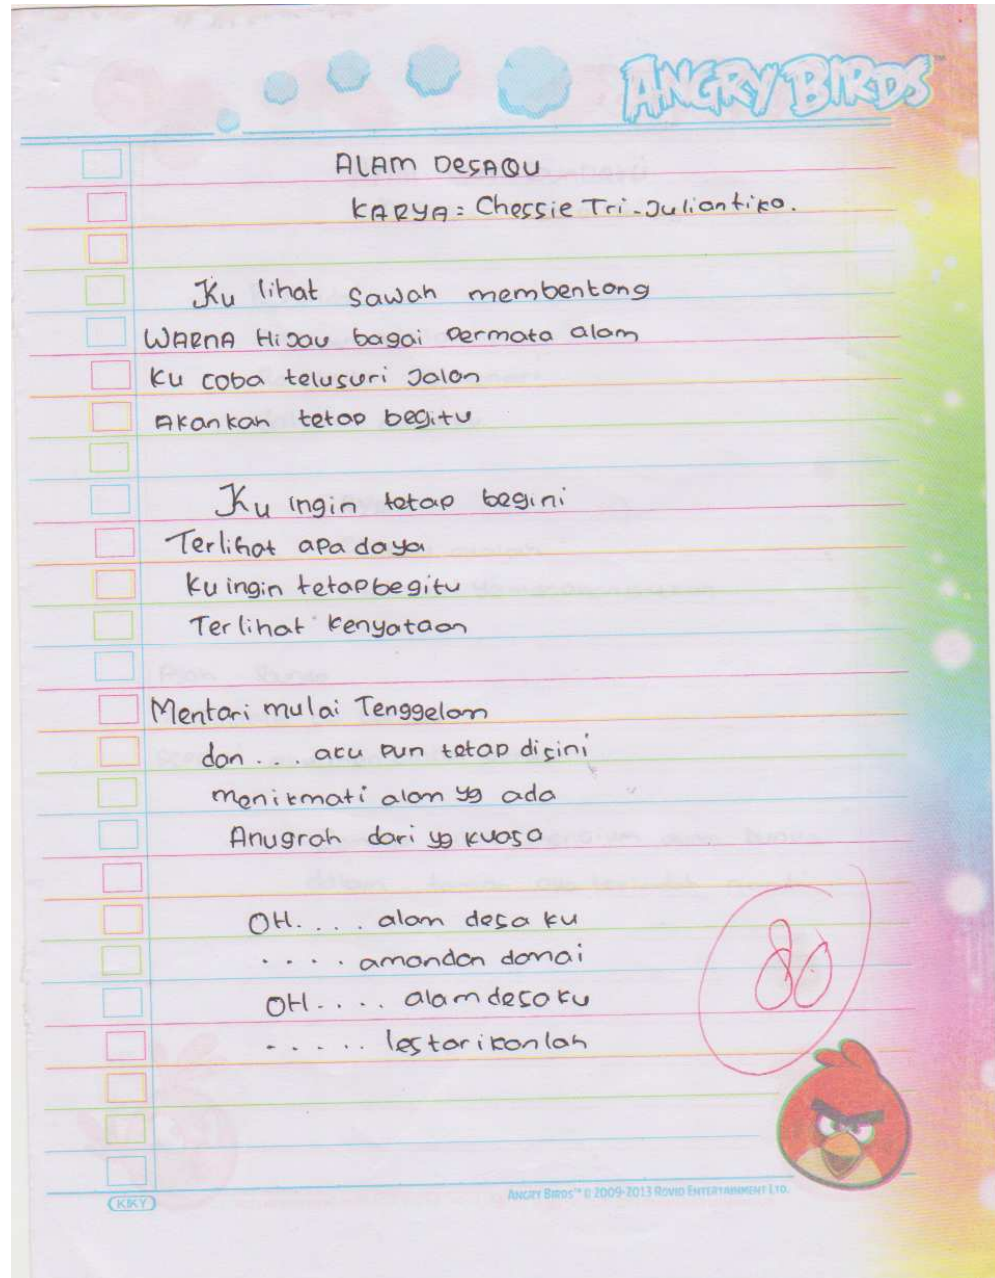 ANGRY BIRDS™
ALAM DESAQU
KARYA: Chessie Tri-Juliantiko.
Ku lihat sawah membentang
WARNA HiJau bagai Permata alam
Ku coba telusuri Jalan
Akankah tetap begitu
Ku ingin tetap begini
Terlihat apa daya
Ku ingin tetap begitu
Terlihat kenyataan
Mentari mulai Tenggelam
dan ... aku pun tetap disini
menikmati alam yg ada
Anugrah dari yg kuasa
OH.... alam desa ku
.... aman dan damai
OH.... alam desa ku
..... lestarikanlah
80
KIKY
ANGRY BIRDS™ © 2009-2013 ROVIO ENTERTAINMENT LTD.